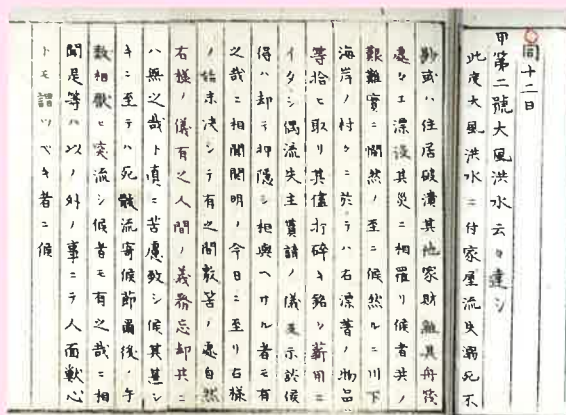 同十二日
甲第二號大風洪水云々達シ
此度大風洪水ニ付家屋流失溺死不
尠或ハ住居破潰其他家財雜具舟筏
處々エ漂沒其災ニ相罹リ候者共ノ
艱難實ニ憫然ノ至ニ候然ルニ川下
海岸ノ村々ニ於テハ右漂着ノ物品
等拾ヒ取リ其儘打碎キ銘々薪用ニ
イタシ偶流失主貰請ノ儀及示談候
得ハ却テ押隱シ相與ヘサル者モ有
之哉ニ相聞開明ノ今日ニ至リ右樣
ノ始末决シテ有之間敷筈ノ處自然
右樣ノ儀有之人間ノ義務忘却共ニ
ハ無之哉ト真ニ苦慮致シ候其甚シ
キニ至テハ死骸流寄候節層後ノ手
數相厭ヒ突流シ候者モ有之哉ニ相
聞是等ハ以ノ外ノ事ニテ人面獸心
トモ謂ツベキ者ニ候